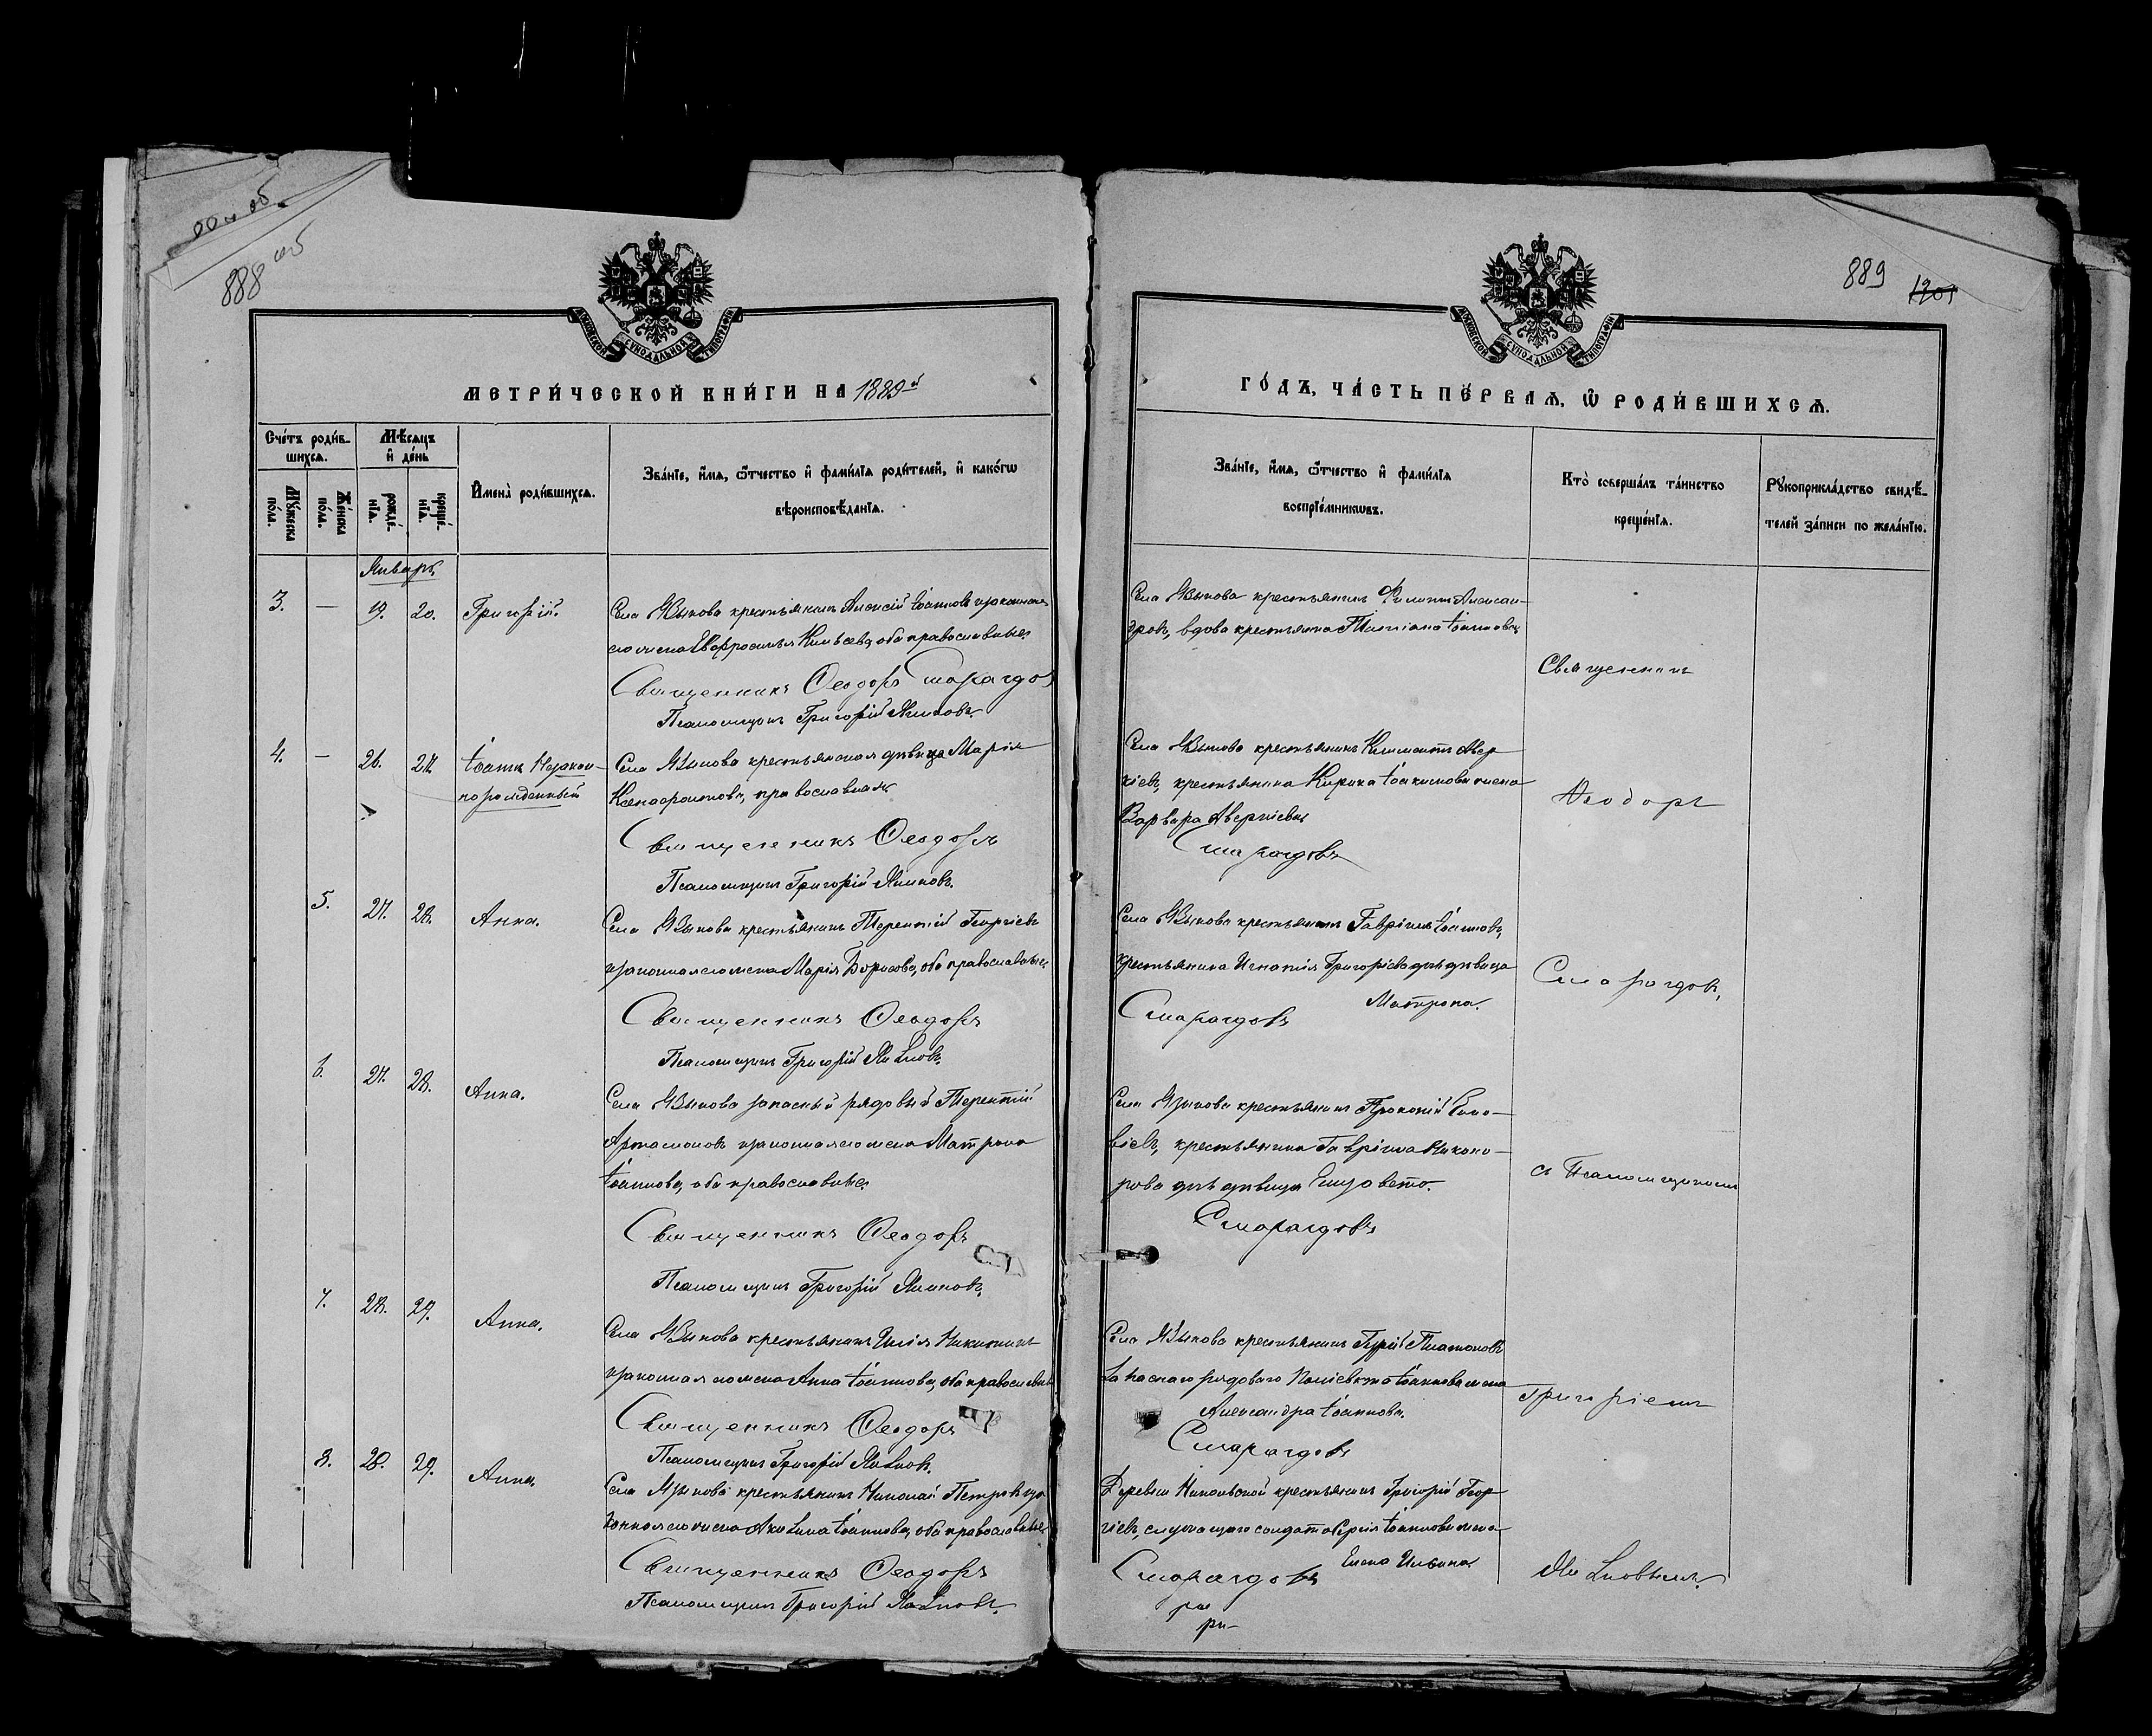 888 об
889
1201
МЕТРИЧЕСКОЙ КНИГИ НА 1889й
ГОДЪ, ЧАСТЬ ПЕРВАЯ, Ѡ РОДИВШИХСЯ.
Счетъ родив-
шихся.
Мужеска
полъ.
Женска
полъ.
Мѣсяцъ
и день
рожде-
нія.
креще-
нія.
Имена родившихся.
Званіе, имя, ѻтчество и фамилія родителей, и какогѡ
вѣроисповѣданія.
Званіе, имя, ѻтчество и фамилія
воспріемникѡвъ.
Кто совершалъ таинство
крещенія.
Рукоприкладство свидѣ-
телей записи по желанію.
Январь
3. — 19. 20. Григорій.
Села Языкова крестьянинъ Алексій Іоанновъ и законная
его жена Евфросинья, оба православные.
Священникъ Ѳеодоръ Смарагдов
Псаломщикъ Григорій
Села Языкова крестьянинъ Филиппъ Алексан-
дровъ, вдова крестьянка Татіана Іоаннова.
Священникъ
4. — 26. 27. Іоаннъ Незакон-
норожденный
Села Языкова крестьянская дѣвица Марія
Ксенофонтова, православная
Священникъ Ѳеодоръ
Псаломщикъ Григорій
Села Языкова крестьянинъ Климентъ Авер-
кіевъ, крестьянина Кирика Іоакимова жена
Варвара Аверкіева
Смарагдовъ
Ѳеодоръ
5. 27. 28. Анна.
Села Языкова крестьянинъ Терентій Георгіевъ
и законная его жена Марія Борисова, оба православные.
Священникъ Ѳеодоръ
Псаломщикъ Григорій
Села Языкова крестьянинъ Гавріилъ Іоанновъ,
крестьянина Игнатія Григорьева дочь дѣвица
Матрона.
Смарагдовъ
Смарагдовъ,
6. 27. 28. Анна.
Села Языкова запасный рядовый Терентій
Артамоновъ и законная его жена Матрона
Іоаннова, оба православные.
Священникъ Ѳеодоръ
Псаломщикъ Григорій
Села Языкова крестьянинъ Прокопій
крестьянина Гавріила Никано-
рова дочь дѣвица Елизавета.
Смарагдовъ
съ Псаломщикомъ
7. 28. 29. Анна.
Села Языкова крестьянинъ Илія Никитинъ
и законная его жена Анна Іоаннова, оба православн
Священникъ Ѳеодоръ
Псаломщикъ Григорій
Села Языкова крестьянинъ Гурій Платоновъ
Запаснаго рядоваго Іоаннова жена
Александра Іоаннова.
Смарагдовъ
Григоріемъ
8. 28. 29. Анна.
Села Языкова крестьянинъ Николай Петровъ и за-
конная его жена Акилина Іоаннова, оба православные
Священникъ Ѳеодоръ
Псаломщикъ Григорій
Деревни Никольской крестьянинъ Григорій Геор-
гіевъ, служащаго солдата Сергія Іоаннова жена
Елена Ильина.
Смарагдовъ